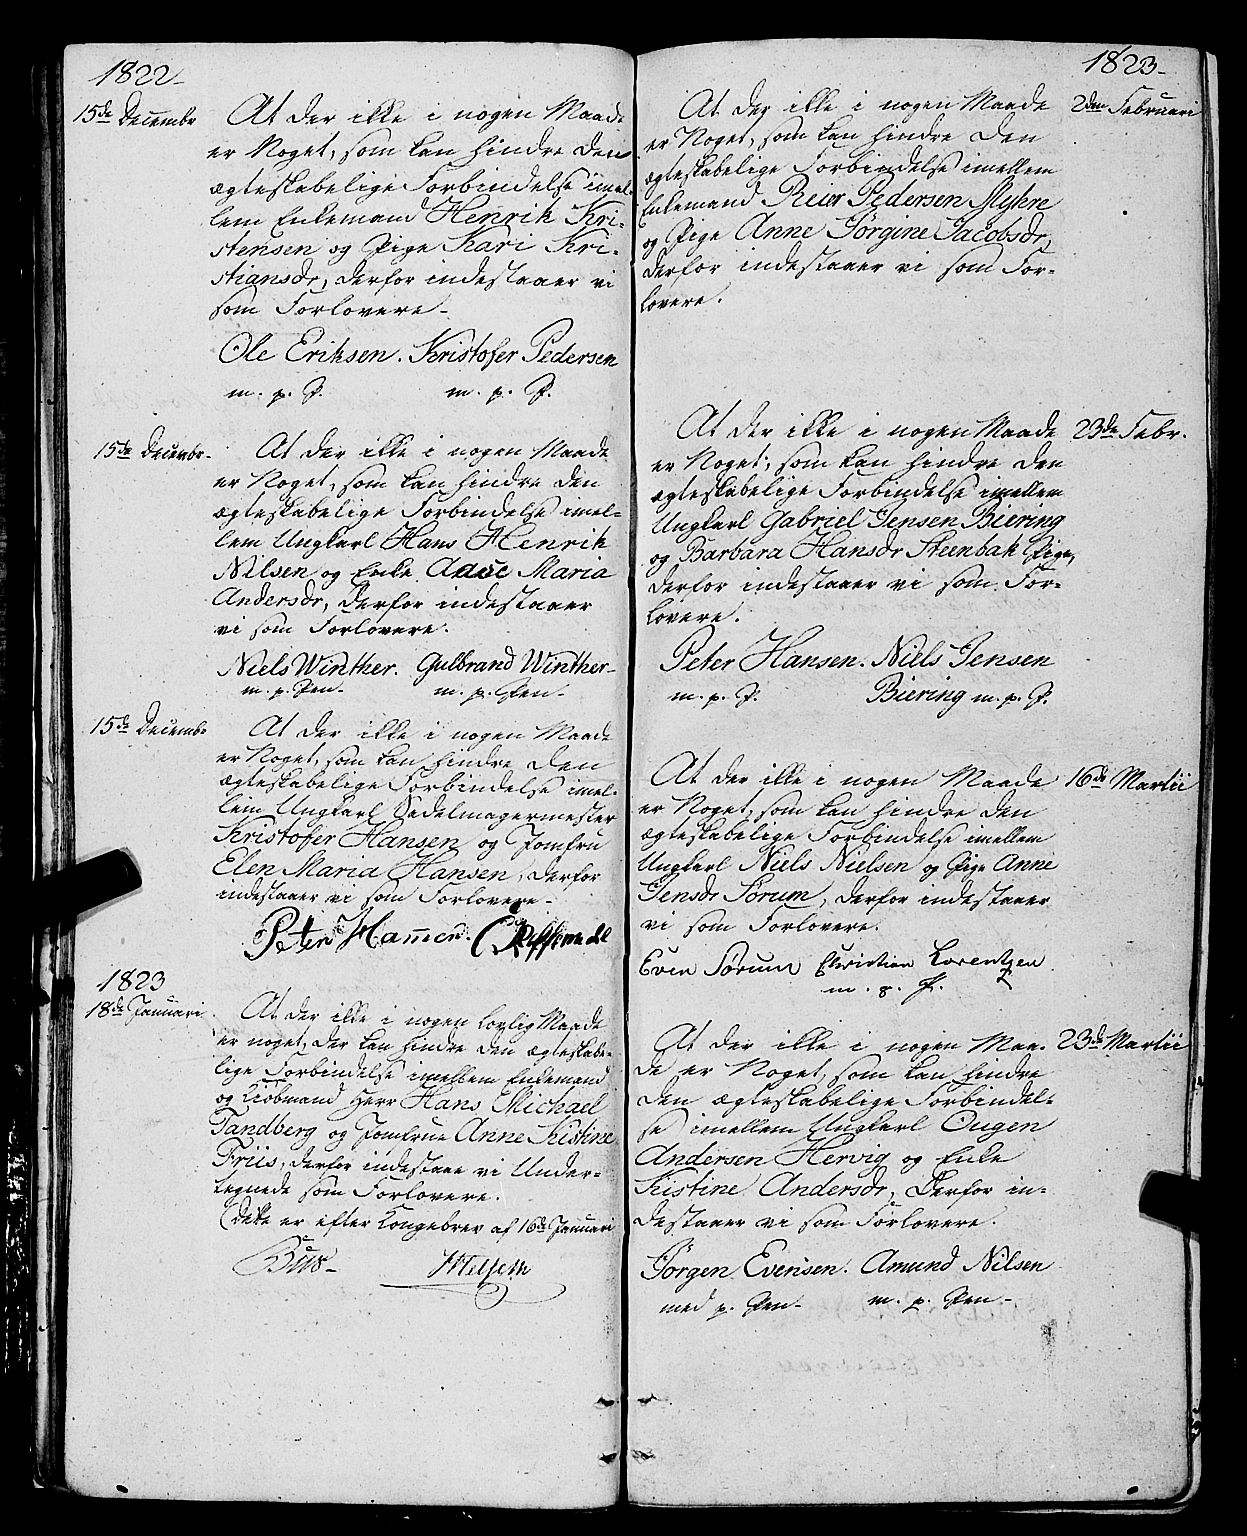 1822
15de Decembr
At der ikke i nogen Maade
er Noget, som kan hindre den
ægteskabelige Forbindelse imel-
lem Enkemand Henrik Kri-
stensen og Pige Kari Kri-
stiansdr, derfor indestaaer vi
som Forlovere.
Ole Eriksen. Kristofer Pedersen
m. p. P. m. p. P.
15de Decembr.
At der ikke i nogen Maade
er Noget, som kan hindre den
ægteskabelige Forbindelse imel-
lem Ungkarl Hans Henrik
Nilsen og Enke Maria
Andersdr, derfor indestaaer
vi som Forlovere.
Niels Winther. Gulbrand Winther
m. p. Pen. m. p. Pen.
15de Decembr
At der ikke i nogen Maade
er Noget, som kan hindre den
ægteskabelige Forbindelse imel-
lem Ungkarl Sadelmagermester
Kristofer Hansen og Jomfru
Elen Maria Hansen, derfor
indestaaer vi som Forlovere.
Peter
1823
18de Januari
At der ikke i nogen lovlig Maade
er noget, der kan hindre den ægteskabe-
lige Forbindelse imellem Enkemand
og Kiøbmand Herr Hans Michael
Tandberg og Jomfrue Anne Kistine
Friis, derfor indestaae vi Under-
tegnede som Forlovere.
(dette er efter Kongebrev af 16de Januari
1823
2den Februari
At der ikke i nogen Maade
er Noget, som kan hindre den
ægteskabelige Forbindelse imellem
Enkemand Reier Pedersen Myhre
og Pige Anne Jørgine Jacobsdr,
derfor indestaaer vi som For-
lovere.
23de Febr.
At der ikke i nogen Maade
er Noget, som kan hindre den
ægteskabelige Forbindelse imellem
Ungkarl Gabriel Jensen Biering
og Barbara Hansdr Steenbak Pige,
derfor indestaaer vi som For-
lovere.
Peter Hansen. Niels Jensen
m. p. P. Biering m. p. P.
16de Martii
At der ikke i nogen Maade
er Noget, som kan hindre den
ægteskabelige Forbindelse imellem
Ungkarl Niels Nielsen og Pige Anne
Jensdr Sørum, derfor indestaaer
vi som Forlovere.
Even Sørum Christian Lorentzen
23de Martii
At der ikke i nogen Maa-
de er Noget, som kan hindre
den ægteskabelige Forbindel-
se imellem Ungkarl Ougen
Andersen Hervig og Enke
Kistine Andersdr, derfor in-
destaaer vi som Forlovere.
Jørgen Evensen. Amund Nilsen
med p. Pen. m. p. Pen.